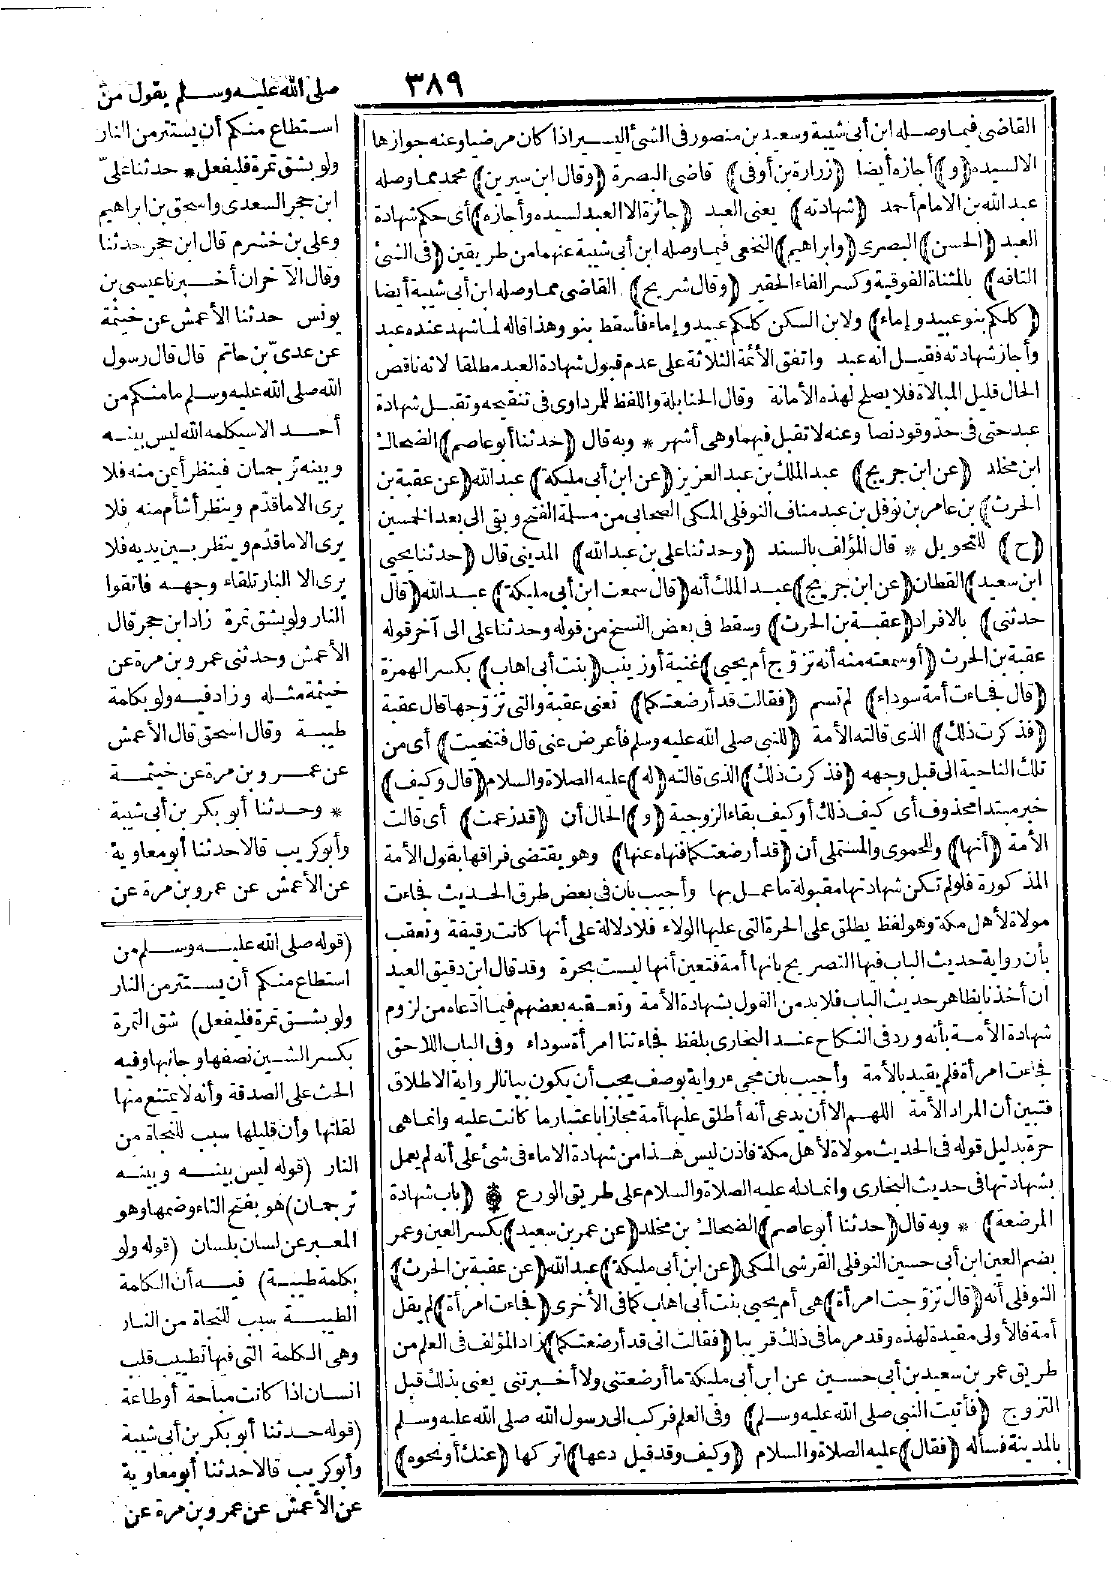 ٣٨٩
القاضى فيما وصله ابن أبى شيبة وسعيد بن منصور فى الشئ اليسير اذا كان مرضيا وعنه جوازها
الا لسيده (و) أجازه أيضا (زرارة بن أوفى) قاضى البصرة (وقال ابن سيرين) محمد مما وصله
عبد الله بن الامام أحمد (شهادته) يعنى العبد (جائزة الا العبد لسيده وأجازه) أى حكم شهادة
العبد (الحسن) البصرى (وابراهيم) النخعى فيما وصله ابن أبى شيبة عنهما من طريقين (فى الشئ
التافه) بالمثناة الفوقية وكسر الفاء الحقير (وقال شريح) القاضى مما وصله ابن أبى شيبة أيضا
(كلكم بنو عبيد وإماء) ولابن السكن كلكم عبيد وإماء فأسقط بنو وهذا قاله لما شهد عنده عبد
وأجاز شهادته فقيل انه عبد واتفق الأئمة الثلاثة على عدم قبول شهادة العبد مطلقا لانه ناقص
الحال قليل المبالاة فلا يصلح لهذه الأمانة وقال الحنابلة واللفظ للمرداوى فى تنقيحه وتقبل شهادة
عبد حتى فى حد وقود نصا وعنه لا تقبل فيهما وهى أشهر * وبه قال (حدثنا أبو عاصم) الضحاك
ابن مخلد (عن ابن جريج) عبد الملك بن عبد العزيز (عن ابن أبى مليكة) عبد الله (عن عقبة بن
الحرث) بن عامر بن نوفل بن عبد مناف النوفلى المكى الصحابى من مسلمة الفتح وبقى الى بعد الخمسين
(ح) للتحويل * قال المؤلف بالسند (وحدثنا على بن عبد الله) المدينى قال (حدثنا يحيى
ابن سعيد) القطان (عن ابن جريج) عبد الملك أنه (قال سمعت ابن أبى مليكة) عبد الله (قال
حدثنى) بالافراد (عقبة بن الحرث) وسقط فى بعض النسخ من قوله وحدثنا على الى آخر قوله
عقبة بن الحرث (أو سمعته منه أنه تزوّج أم يحيى) غنية أو زينب (بنت أبى اهاب) بكسر الهمزة
(قال فجاءت أمة سوداء) لم تسم (فقالت قد أرضعتكما) تعنى عقبة والتى تزوّجها قال عقبة
(فذكرت ذلك) الذى قالته الأمة (للنبى صلى الله عليه وسلم فأعرض عنى قال فتنحيت) أى من
تلك الناحية الى قبل وجهه (فذكرت ذلك) الذى قالته (له) عليه الصلاة والسلام (قال وكيف)
خبر مبتدا محذوف أى كيف ذلك أو كيف بقاء الزوجية (و) الحال أن (قد زعمت) أى قالت
الأمة (أنها) وللحموى والمستملى أن (قد أرضعتكما فنهاه عنها) وهو يقتضى فراقها بقول الأمة
المذكورة فلو لم تكن شهادتها مقبولة ما عمل بها وأجيب بان فى بعض طرق الحديث فجاءت
مولاة لأهل مكة وهو لفظ يطلق على الحرة التى عليها الولاء فلا دلالة على أنها كانت رقيقة وتعقب
بأن رواية حديث الباب فيها التصريح بانها أمة فتعين أنها ليست بحرة وقد قال ابن دقيق العيد
ان أخذنا بظاهر حديث الباب فلا بد من القول بشهادة الأمة وتعقبه بعضهم فيما ادّعاه من لزوم
شهادة الأمة بأنه ورد فى النكاح عند البخارى بلفظ فجاءتنا امرأة سوداء وفى الباب اللاحق
فجاءت امرأة فلم يقيد بالأمة وأجيب بان مجىء رواية بوصف يجب أن يكون بيانا لرواية الاطلاق
فتبين أن المراد الأمة اللهم الا أن يدعى أنه أطلق عليها أمة مجازا باعتبار ما كانت عليه وانما هى
حرة بدليل قوله فى الحديث مولاة لأهل مكة فاذن ليس هذا من شهادة الاماء فى شئ على أنه لم يعمل
بشهادتها فى حديث البخارى وانما دله عليه الصلاة والسلام على طريق الورع (باب شهادة
المرضعة) * وبه قال (حدثنا أبو عاصم) الضحاك بن مخلد (عن عمر بن سعيد) بكسر العين وعمر
بضم العين ابن أبى حسين النوفلى القرشى المكى (عن ابن أبى مليكة) عبد الله (عن عقبة بن الحرث)
النوفلى أنه (قال تزوّجت امرأة) هى أم يحيى بنت أبى اهاب كما فى الأخرى (فجاءت امرأة) لم يقل
أمة فالأولى مقيدة لهذه وقد مر ما فى ذلك قريبا (فقالت انى قد أرضعتكما) زاد المؤلف فى العلم من
طريق عمر بن سعيد بن أبى حسين عن ابن أبى مليكة ما أرضعتنى ولا أخبرتنى يعنى بذلك قبل
التزوج (فأتيت النبى صلى الله عليه وسلم) وفى العلم فركب الى رسول الله صلى الله عليه وسلم
بالمدينة فسأله (فقال) عليه الصلاة والسلام (وكيف وقد قيل دعها) اتركها (عنك أو نحوه)
صلى الله عليه وسلم يقول من
استطاع منكم أن يستتر من النار
ولو بشق تمرة فليفعل * حدثنا علىّ
ابن حجر السعدى واسحق بن ابراهيم
وعلى بن خشرم قال ابن حجر حدثنا
وقال الآخران أخبرنا عيسى بن
يونس حدثنا الأعمش عن خيثمة
عن عدىّ بن حاتم قال قال رسول
الله صلى الله عليه وسلم ما منكم من
أحد الا سيكلمه الله ليس بينه
وبينه ترجمان فينظر أعن منه فلا
يرى الا ما قدّم وينظر أشأم منه فلا
يرى الا ما قدّم وينظر بين يديه فلا
يرى الا النار تلقاء وجهه فاتقوا
النار ولو بشق تمرة زاد ابن حجر قال
الأعمش وحدثنى عمرو بن مرة عن
خيثمة مثله وزاد فيه ولو بكلمة
طيبة وقال اسحق قال الأعمش
عن عمرو بن مرة عن خيثمة
* وحدثنا أبو بكر بن أبى شيبة
وأبو كريب قالا حدثنا أبو معاوية
عن الأعمش عن عمرو بن مرة عن
(قوله صلى الله عليه وسلم من
استطاع منكم أن يستتر من النار
ولو بشق تمرة فليفعل) شق التمرة
بكسر الشين نصفها وجانبها وفيه
الحث على الصدقة وأنه لا يمتنع منها
لقلتها وأن قليلها سبب للنجاة من
النار (قوله ليس بينه وبينه
ترجمان) هو بفتح التاء وضمها وهو
المعبر عن لسان بلسان (قوله ولو
بكلمة طيبة) فيه أن الكلمة
الطيبة سبب للنجاة من النار
وهى الكلمة التى فيها تطييب قلب
انسان اذا كانت مباحة أو طاعة
(قوله حدثنا أبو بكر بن أبى شيبة
وأبو كريب قالا حدثنا أبو معاوية
عن الأعمش عن عمرو بن مرة عن